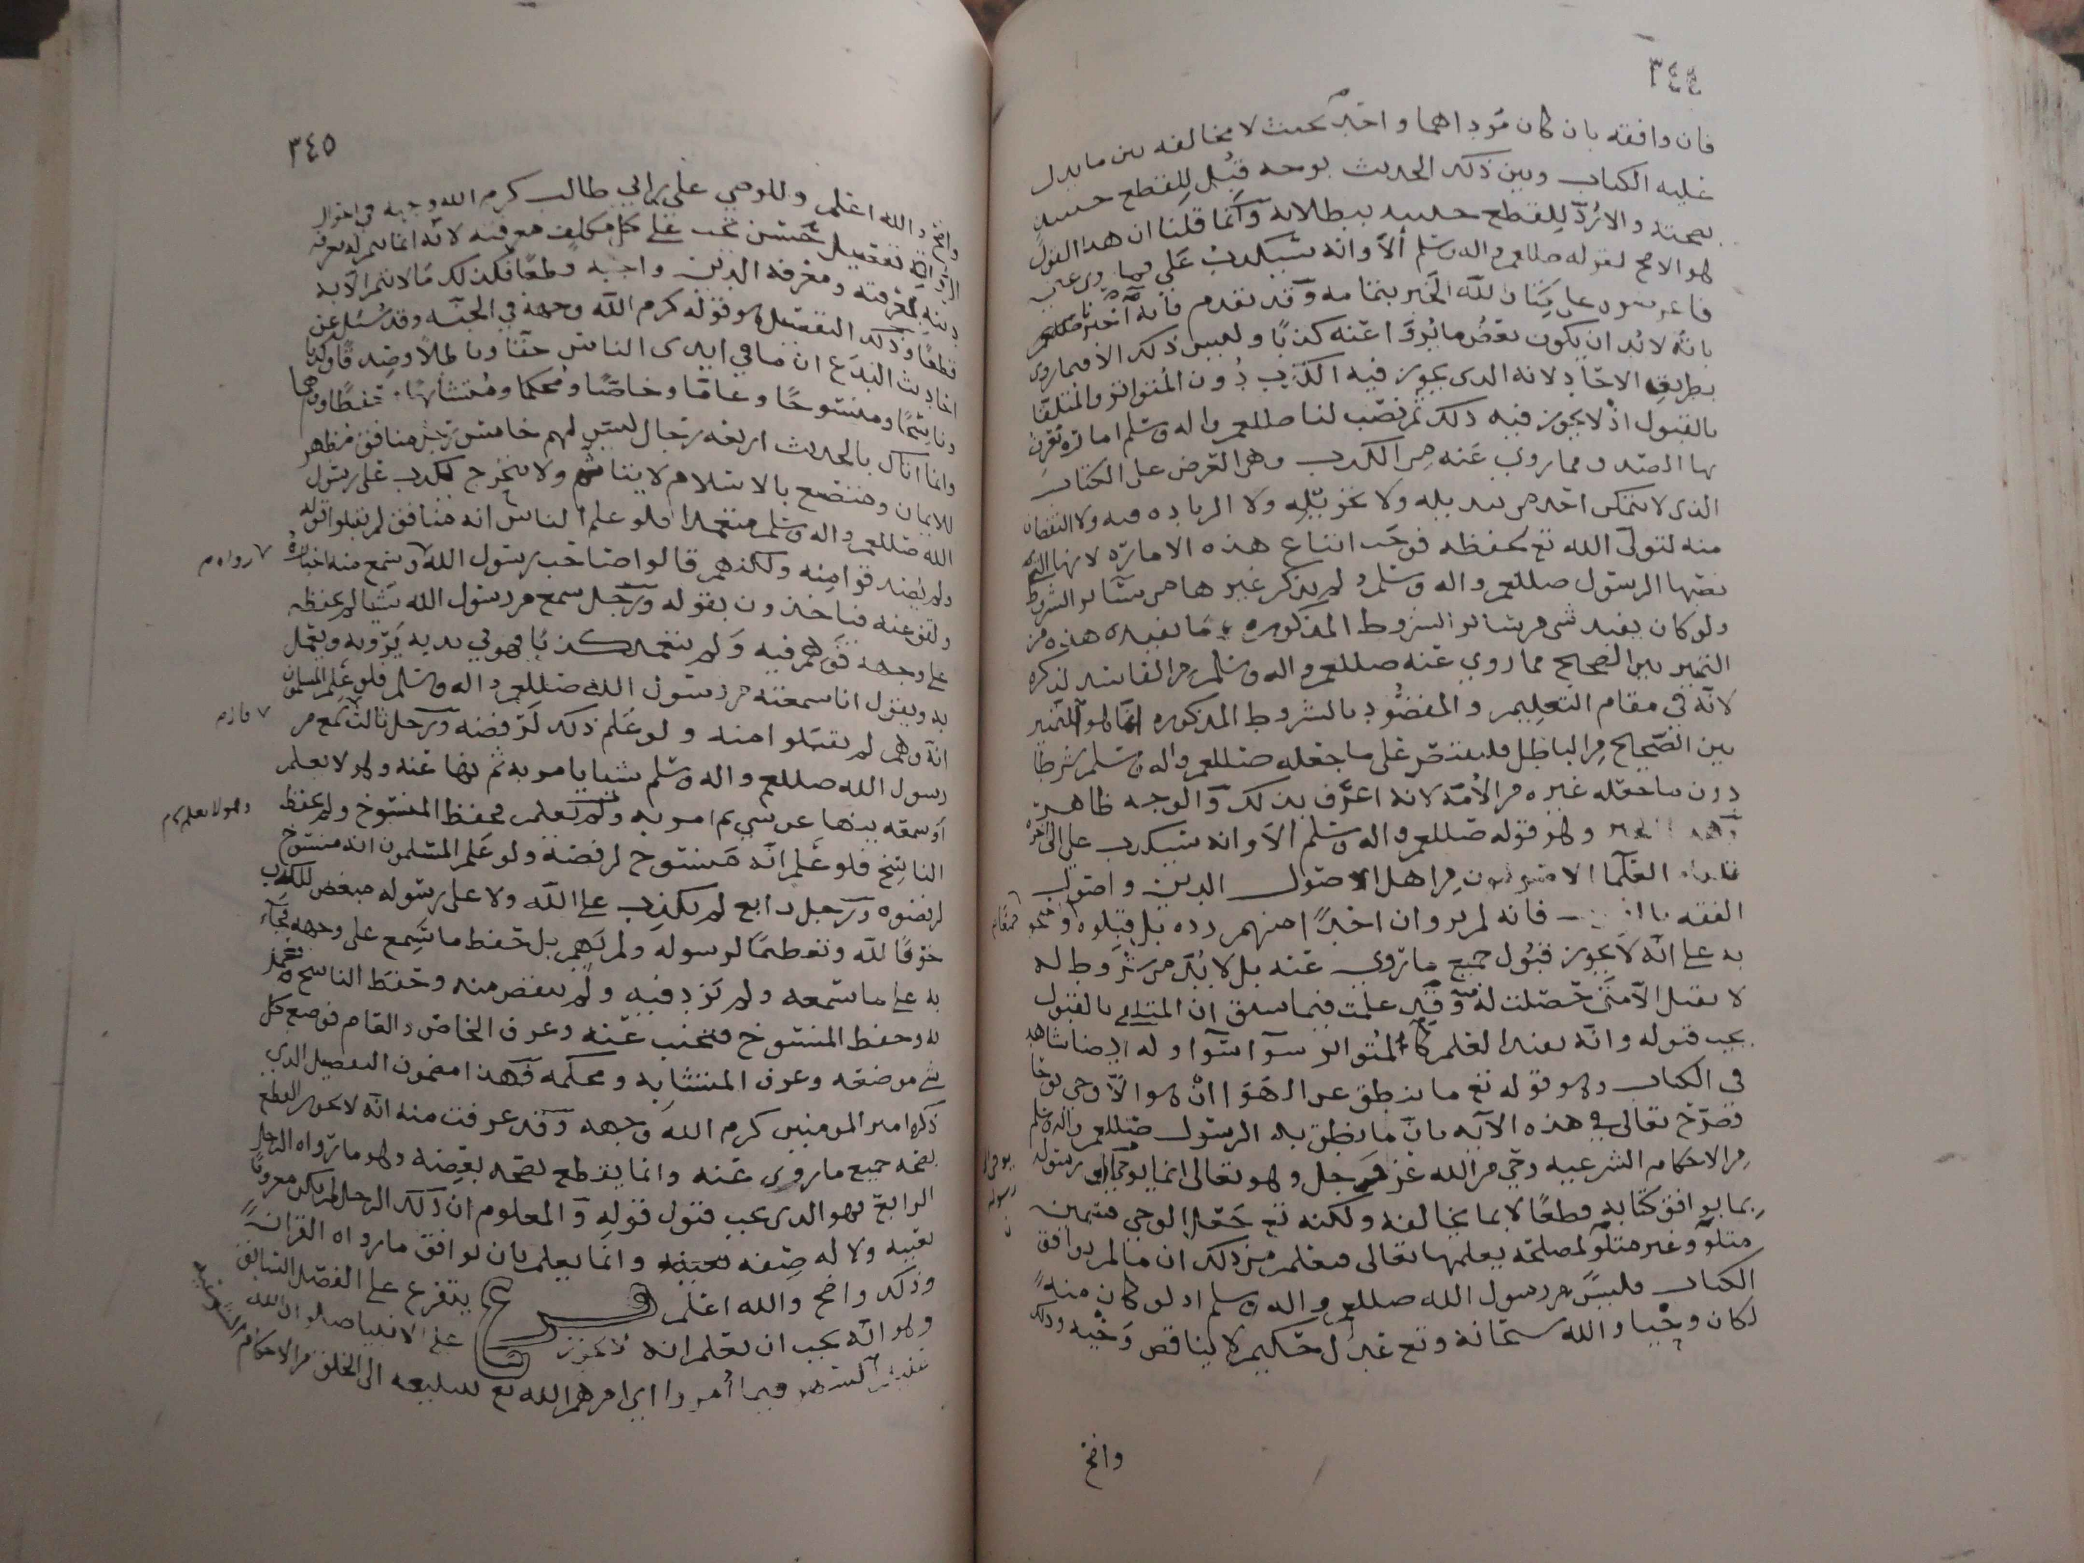 ٣٤٤
فان وافقه بان كان مؤداهما واحد بحيث لا مخالفه بين ما يدل
عليه الكتاب وبين ذلك الحديث بوجه قُبل للقطع حينئذ
بصحته والا رُدّ للقطع حينئذ ببطلانه وانما قلنا ان هذا القول
هو الاصح لقوله صللعم واله وسلم ألا وانه سيكذب علي فما روي عني
فاعرضوه على كتاب الله الخبر بتمامه وقد تقدم فانه اخبر صللعم
بانه لا بد ان يكون بعض ما يُروا عنه كذبًا وليس ذلك الا فيما روي
بطريق الاحاد لانه الذي يجوز فيه الكذب دون المتواتر والمتلقا
بالقبول اذ لا يجوز فيه ذلك ثم نصب لنا صللعم واله وسلم امارة نعرف
بها الصدق مما روي عنه من الكذب وهي العرض على الكتاب
الذي لا يتمكن احد من تبديله ولا تحويله ولا الزياده فيه ولا النقصان
منه لتولي الله تع بحفظه فوجب اتباع هذه الامارة لانها التي
نصبها الرسول صللعم واله وسلم ولم يذكر غيرها من سائر الشروط
ولو كان يفيد شي من سائر الشروط المذكوره ما تفيده هذه من
التمييز بين الصحيح مما روي عنه صللعم واله وسلم من الفاسد لذكره
لانه في مقام التعليم والمقصود بالشروط المذكوره انما هو التمييز
بين الصحيح من الباطل فليقتصر على ما جعله صللعم واله وسلم شرطا
دون ما جعله غيره من الأمة لانه اعرف بذلك والوجه ظاهر
وهو قوله صللعم واله وسلم ألا وانه سيكذب علي الى اخره
العلما الاصوليون من اهل الاصول الدين واصول
الفقه فانه لم يرو ان احدًا منهم رده بل قبلوه
به على انه لا يجوز قبول جميع ما روي عنه بل لا بد من شروط له
لا يقبل الا متى حصلت له وقد علمت فيما سبق ان المتلقى بالقبول
يجب قبوله وانه يفيد العلم كالمتواتر سوآ سوآ وله ايضا شاهد
في الكتاب وهو قوله تع ما ينطق عن الهوا ان هو الا وحي يوحا
فصرّح تعالى في هذه الآيه بان ما نطق به الرسول صللعم واله وسلم
من الاحكام الشرعيه وحي من الله عز وجل وهو تعالى انما يوحي الى رسوله
بما يوافق كتابه قطعًا لا بما يخالفه ولكنه تع جعل الوحي قسمين
متلوًّا وغير متلوّ لمصلحة يعلمها تعالى فعلم من ذلك ان ما لم يوافق
الكتاب فليس من رسول الله صللعم واله وسلم اذ لو كان منه
لكان وحيا والله سبحانه وتع عدل حكيم لا يناقض وحيه وذلك
واضح
٣٤٥
واضح والله اعلم وللوصي علي بن ابي طالب كرم الله وجهه في احوال
الرواية تفصيل حسن يجب على كل مكلف معرفته لانه انما يتم له معرفة
دينه بمعرفته ومعرفة الدين واجبه قطعًا فكذلك ما لا يتم الا به
قطعًا وذلك التفصيل هو قوله كرم الله وجهه في الجنه وقد سُئل عن
احاديث البدع ان ما في ايدي الناس حقا وباطلاً وصدقًا وكذبا
وناسخًا ومنسوخًا وعامًا وخاصًا ومحكما ومتشابها وحفظًا ووهما
وانما اتاك بالحديث اربعه رجال ليس لهم خامس رجل منافق مظهر
للايمان ومتصنع بالاسلام لا يتاثم ولا يتحرج يكذب على رسول
الله صللعم واله وسلم متعمدا فلو علم الناس انه منافق لم يقبلوا قوله
ولم يصدقوا منه ولكنهم قالوا صاحب رسول الله وسمع منه
ولقف عنه فياخذون بقوله ورجل سمع من رسول الله شيا لم يحفظه
على وجهه فوهم فيه ولم يتعمد كذبًا فهو في يديه يرويه ويعمل
به ويقول انا سمعته من رسول الله صللعم واله وسلم فلو علم المسلمون
انه وهم لم يقبلوا منه ولو علم ذلك لرفضه ورجل ثالث سمع من
رسول الله صللعم واله وسلم شيا يامر به ثم نها عنه وهو لا يعلم
او سمعه ينها عن شي ثم امر به ولم يعلم فحفظ المنسوخ ولم يحفظ
الناسخ فلو علم انه منسوخ لرفضه ولو علم المسلمون انه منسوخ
لرفضوه ورجل رابع لم يكذب على الله ولا على رسوله مبغض للكذب
خوفًا لله وتعظيمًا لرسوله ولم يهم بل حفظ ما سمع على وجهه فجآء
به على ما سمعه ولم يزد فيه ولم ينقص منه وحفظ الناسخ فعمل
به وحفظ المنسوخ فتجنب عنه وعرف الخاص والعام فوضع كل
شي موضعه وعرف المتشابه ومحكمه فهذا مضمون التفصيل الذي
ذكره امير المومنين كرم الله وجهه وقد عرفت منه انه لا يجوز القطع
بصحه جميع ما روي عنه وانما يقطع بصحه بعضه وهو ما رواه الرجل
الرابع فهو الذي يجب قبول قوله والمعلوم ان ذلك الرجل لم يكن معروفا
بعينه ولا له صفه تعينه وانما يعلم بان يوافق ما رواه القران
وذلك واضح والله اعلم فرع يتفرع على الفصل السابق
وهو انه يجب ان يعلم انه لا يجوز على الانبيا صلوات الله
فيما أمروا اي امرهم الله تع بتبليغه الى الخلق من الاحكام
رواه م
وهو لا يعلم م